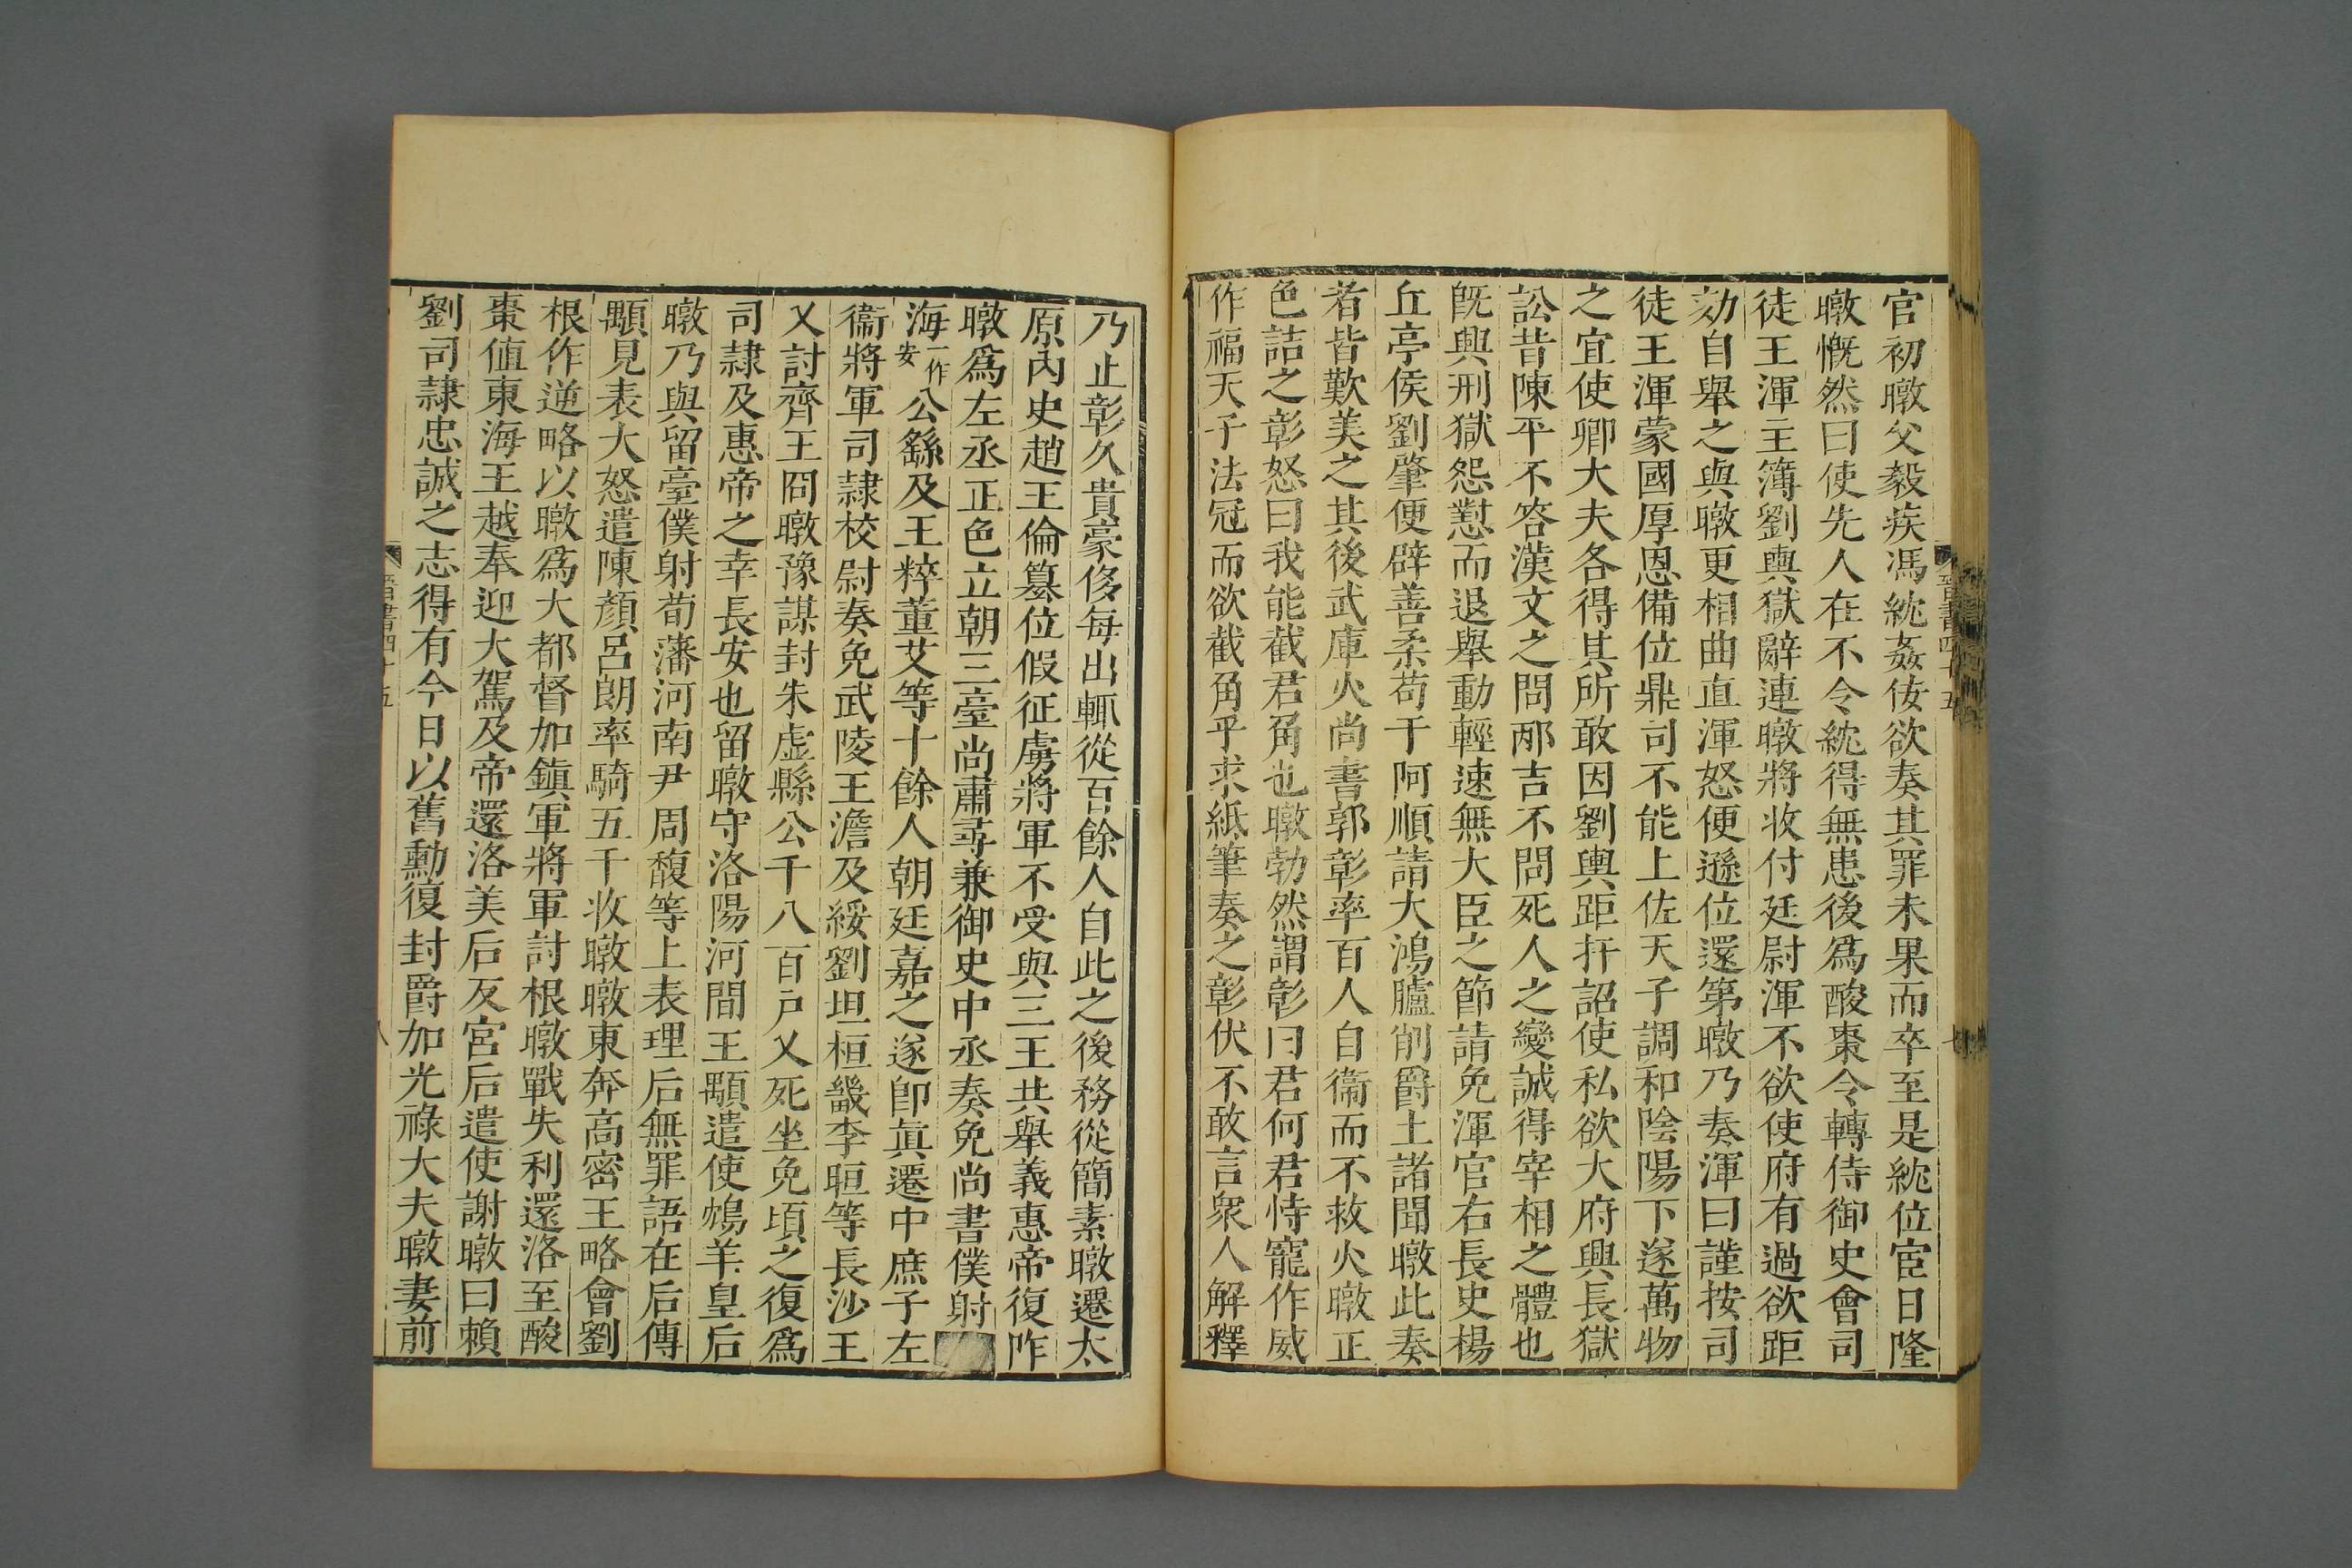 官初暾父毅疾馮紞姦佞欲奏其罪未果而卒至是紞位宦日隆
暾慨然曰使先人在不令紞得無患後爲酸棗令轉侍御史會司
徒王渾主簿劉輿獄辭連暾將收付廷尉渾不欲使府有過欲距
劾自舉之與暾更相曲直渾怒便遜位還第暾乃奏渾曰謹按司
徒王渾蒙國厚恩備位鼎司不能上佐天子調和陰陽下遂萬物
之宜使卿大夫各得其所敢因劉輿距扞詔使私欲大府興長獄
訟昔陳平不答漢文之問邴吉不問死人之變誠得宰相之體也
旣興刑獄怨懟而退舉動輕速無大臣之節請免渾官右長史楊
丘亭侯劉肇便辟善柔苟于阿順請大鴻臚削爵土諸聞暾此奏
者皆歎美之其後武庫火尚書郭彰率百人自衞而不救火暾正
色詰之彰怒曰我能截君角也暾勃然謂彰曰君何君恃寵作威
作福天子法冠而欲截角乎求紙筆奏之彰伏不敢言衆人解釋
乃止彰久貴豪侈每出輒從百餘人自此之後務從簡素暾遷太
原內史趙王倫篡位假征虜將軍不受與三王共舉義惠帝復阼
暾爲左丞正色立朝三臺尚肅尋兼御史中丞奏免尚書僕射
海一作安公繇及王粹董艾等十餘人朝廷嘉之遂卽眞遷中庶子左
衞將軍司隸校尉奏免武陵王澹及綏劉坦桓畿李晅等長沙王
乂討齊王冏暾豫謀封朱虛縣公千八百戶乂死坐免頃之復爲
司隸及惠帝之幸長安也留暾守洛陽河間王顒遣使鴆羊皇后
暾乃與留臺僕射荀藩河南尹周馥等上表理后無罪語在后傳
顒見表大怒遣陳顏呂朗率騎五千收暾暾東奔高密王略會劉
根作逆略以暾爲大都督加鎭軍將軍討根暾戰失利還洛至酸
棗值東海王越奉迎大駕及帝還洛羙后反宮后遣使謝暾曰賴
劉司隸忠誠之志得有今日以舊勳復封爵加光祿大夫暾妻前